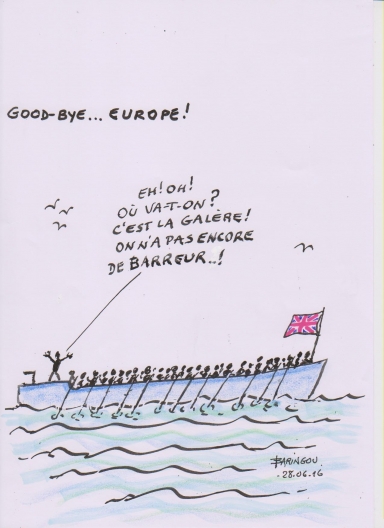 GOOD-BYE... EUROPE!
EH! OH!
OÙ VA-T-ON?
C'EST LA GALÈRE!
ON N'A PAS ENCORE
DE BARREUR..!
BARINGOU
28.06.16